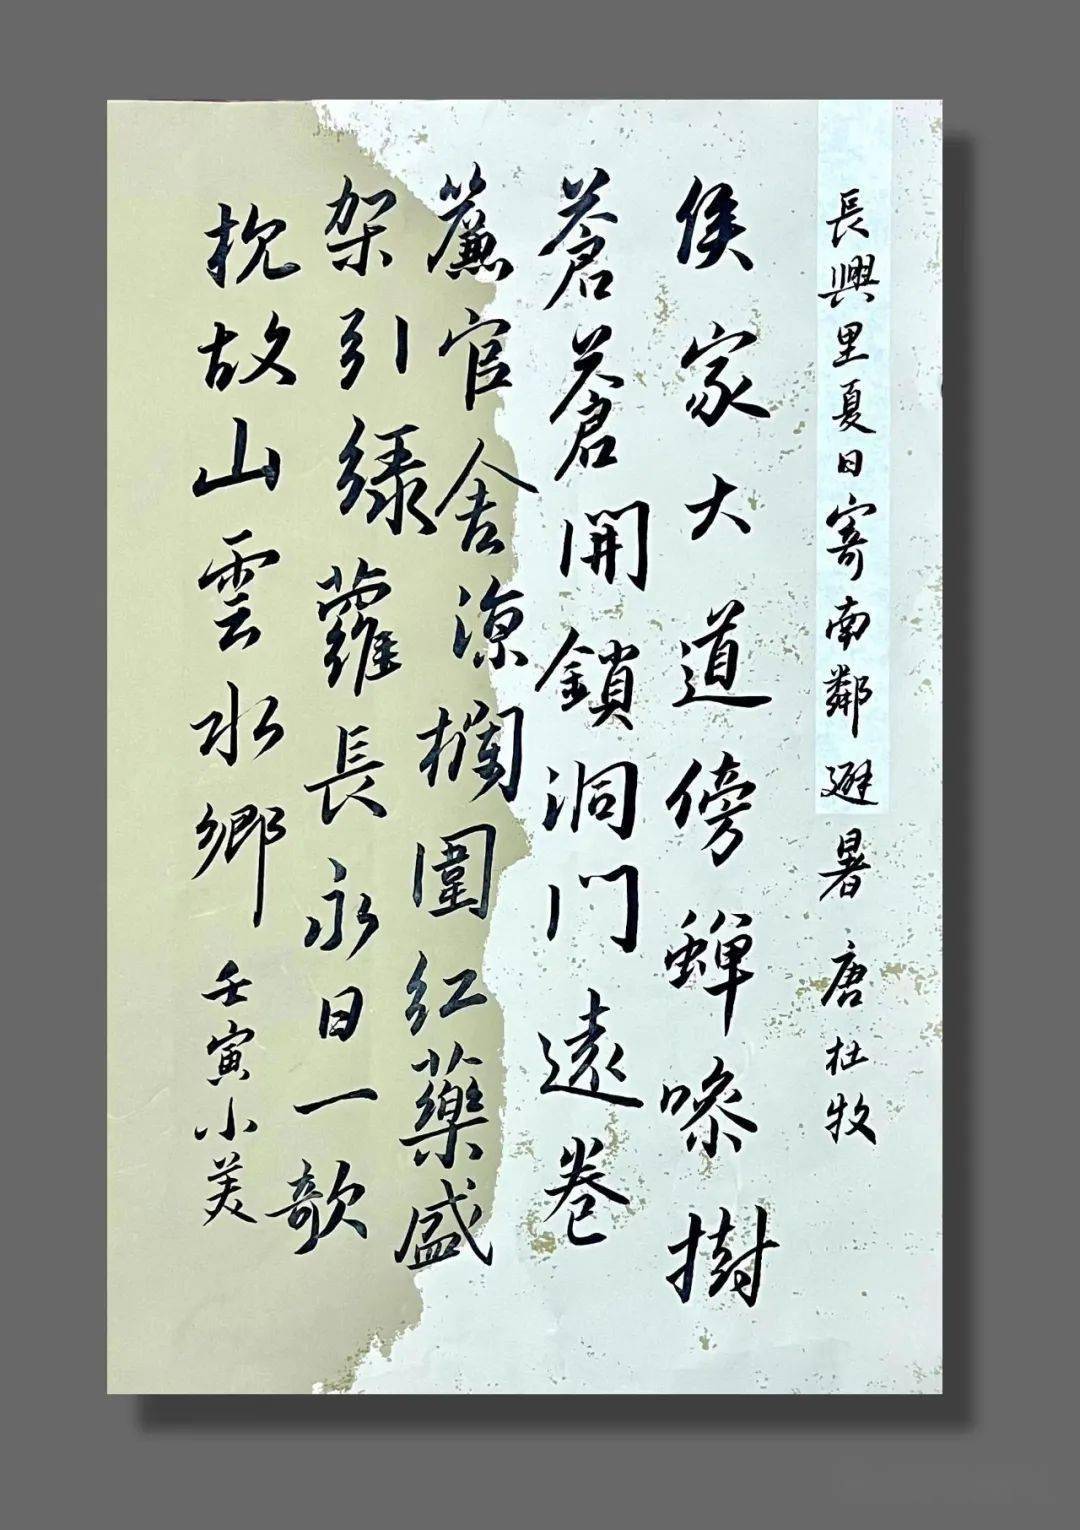 長興里夏日寄南鄰避暑 唐 杜牧
侯家大道傍蟬噪樹
蒼蒼開鎖洞门遠卷
簾官舍涼欄圍红藥盛
架引緑蘿長永日一欹
枕故山雲水鄉 壬寅小美